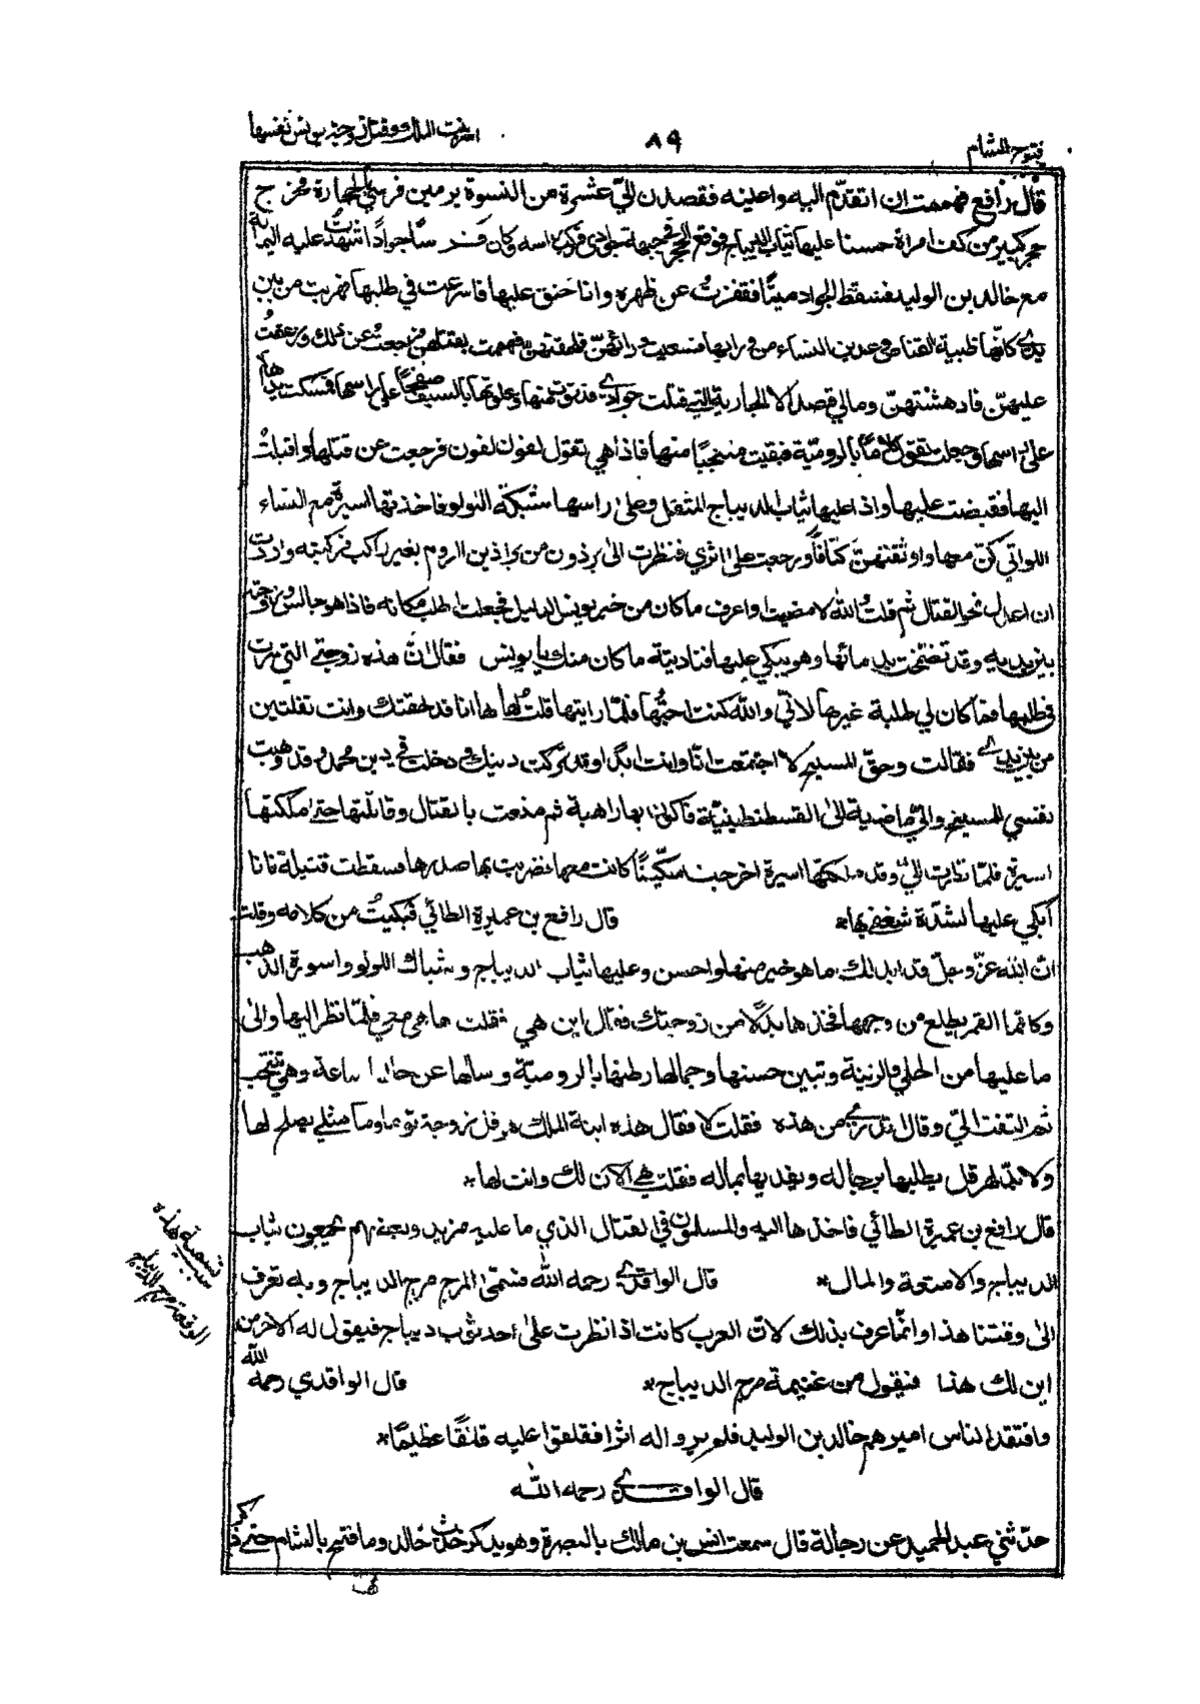 فتوح الشام
٨٩
اسر بنت الملك وقتل زوجة يونس نفسها
قال رافع فهممت ان اتقدّم اليه واعينه فقصدن اليّ عشرة من النسوة يرمين فرسي بالحجارة فخرج
حجر كبير من كف امراة حسنا عليها ثياب الديباج فوقع الحجر في جبهة جوادي فركب راسه وكان فرسًا جوادًا شهدت عليه اليمامة
مع خالد بن الوليد فسقط الجواد ميتًا فقفزتُ عن ظهره وانا حَنِق عليها فاسرعت في طلبها فهربت من بين
يديّ كانّها ظبية القناص وعدين النساء من ورايها فسعيت ورائهنّ فلحقتهنّ فهممت بقتلهنّ فرجعتُ عن ذلك وزعقتُ
عليهنّ فادهشتهنّ ومالي قصد الا الجارية التي قتلت جوادي فدنوت منها وعلوتها بالسيف صفحًا على راسها فمسكت يداها
على راسها وجعلت تقول كلامًا بالروميّة فبقيت متعجبًا منها فاذا هي تقول لفون لفون فرجعت عن قتلها واقبلتُ
اليها فقبضت عليها واذا عليها ثياب الديباج المثقل وعلى راسها شبكة اللولو فاخذتها اسيرة مع النساء
اللواتي كنّ معها واوثقتهنّ كتافًا ورجعت على اثري فنظرت الى برذون من براذين الروم بغير راكب فركبته واردت
ان اعدل نحو القتال ثم قلتُ والله لا مضيت او اعرف ما كان من خبر يونس الدليل فجعلت اطلب مكانه فاذا هو جالس وزوجته
بين يديه وقد تضمخت بدمائها وهو يبكي عليها فناديته ما كان منك يا يونس فقال انّ هذه زوجتي التي سرت
في طلبها فما كان لي طلبة غيرها لانّي والله كنت احبّها فلمّا رايتها قلت لها ها انا قد لحقتك وانت تفلتين
من بين يدي فقالت وحقّ المسيح لا اجتمعت انا وانت ابدًا وقد تركت دينك ودخلت في دين محمد وقد وهبت
نفسي للمسيح وانّي ماضية الى القسطنطينيّة فاكون بها راهبة ثم منعت بالقتال وقاتلتها حتى ملكتها
اسيرة فلمّا نظرت اليّ وقد ملكتها اسيرة اخرجت سكّينًا كانت معها فضربت بها صدرها فسقطت قتيلة فانا
ابكي عليها لشدّة شغفي بها* قال رافع بن عميرة الطائي فبكيتُ من كلامه وقلت
انّ الله عزّ وجلّ قد ابدلك ما هو خير منها واحسن وعليها ثياب الديباج وشباك اللولو واسورة الذهب
وكانما القمر يطلع من وجهها فخذها بدلًا من زوجتك فقال اين هي فقلت ها هي معي فلمّا نظر اليها والى
ما عليها من الحلي والزينة وتبين حسنها وجمالها رطنها بالروميّة وسالها عن حالها ساعة وهي تنتحب
ثم التفت اليّ وقال اتدري من هذه فقلت لا فقال هذه ابنة الملك هرقل زوجة توما وما مثلي يصلح لها
ولا بدّ لهرقل يطلبها برجاله ويفديها بماله فقلت هي الآن لك وانت لها*
قال رافع بن عميرة الطائي فاخذها اليه والمسلمون في القتال الذي ما عليه مزيد وبعضهم يجمعون ثياب
الديباج والامتعة والمال* قال الواقدي رحمه الله فسُمّي المرج مرج الديباج وبه تعرف
الى وقتنا هذا وانّما عرف بذلك لانّ العرب كانت اذا نظرت على احد ثوب ديباج فيقول له الآخر من
اين لك هذا فيقول من غنيمة مرج الديباج* قال الواقدي رحمه الله
وافتقد الناس اميرهم خالد بن الوليد فلم يروا له اثرًا فقلقوا عليه قلقًا عظيمًا*
قال الواقدي رحمه الله
حدّثني عبد الحميد عن رجاله قال سمعت انس بن مالك بالبصرة وهو يذكر حديث خالد وما فتح بالشام حتى ذكر
تسمية هذه
الوقعة مرج الديباج